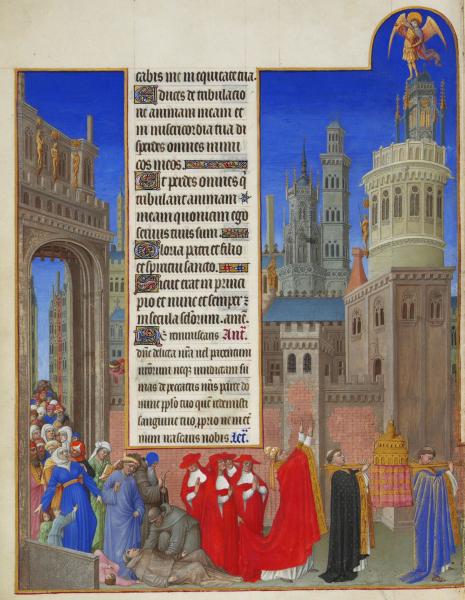 cabis me in equitate tua.
Educes de tribulacio
ne animam meam et
in misericordia tua di
sperdes omnes inimi
cos meos.
Et perdes omnes q̄
tribulant animam
meam quoniam ego
servus tuus sum.
Gloria patri et filio
et spiritui sancto.
Sicut erat in princi
pio et nunc et semper z
in secula sclorum. amē.
Ne reminiscaris Ant.
dn̄e delicta nr̄a vel parentum
nr̄orum neqz vindictam su
mas de peccatis nr̄is parce do
mine pplo tuo quē redemisti
sanguine tuo ne in et
ernum irascaris nobis. Let.